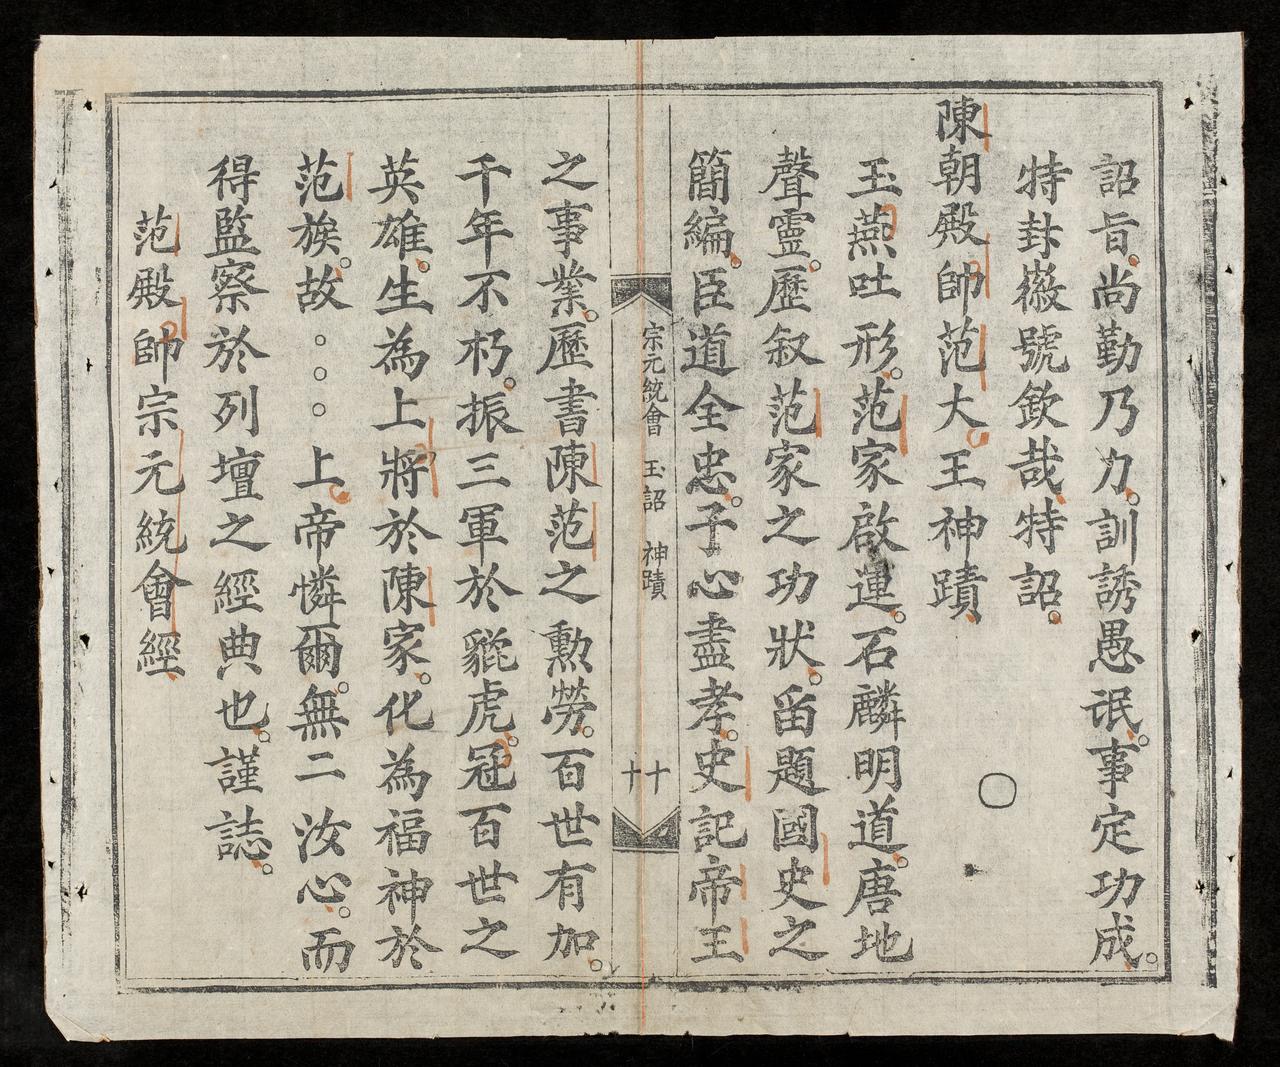 詔旨。尚勤乃力。訓誘愚氓。事定功成。
特封徽號欽哉。特詔。
陳朝殿帥范大王神蹟
玉燕吐形。范家啟運。石麟明道。唐地
聲靈。歷叙范家之功狀。畱題國史之
簡編。臣道全忠。子心盡孝。史記帝王
宗元統會 玉詔 神蹟 十
之事業。歷書陳范之勳勞。百世有加。
千年不朽。振三軍於貔虎。冠百世之
英雄。生為上將於陳家。化為福神於
范族。故○○○上帝憐爾。無二汝心。而
得監察於列壇之經典也。謹誌。
范殿帥宗元統會經